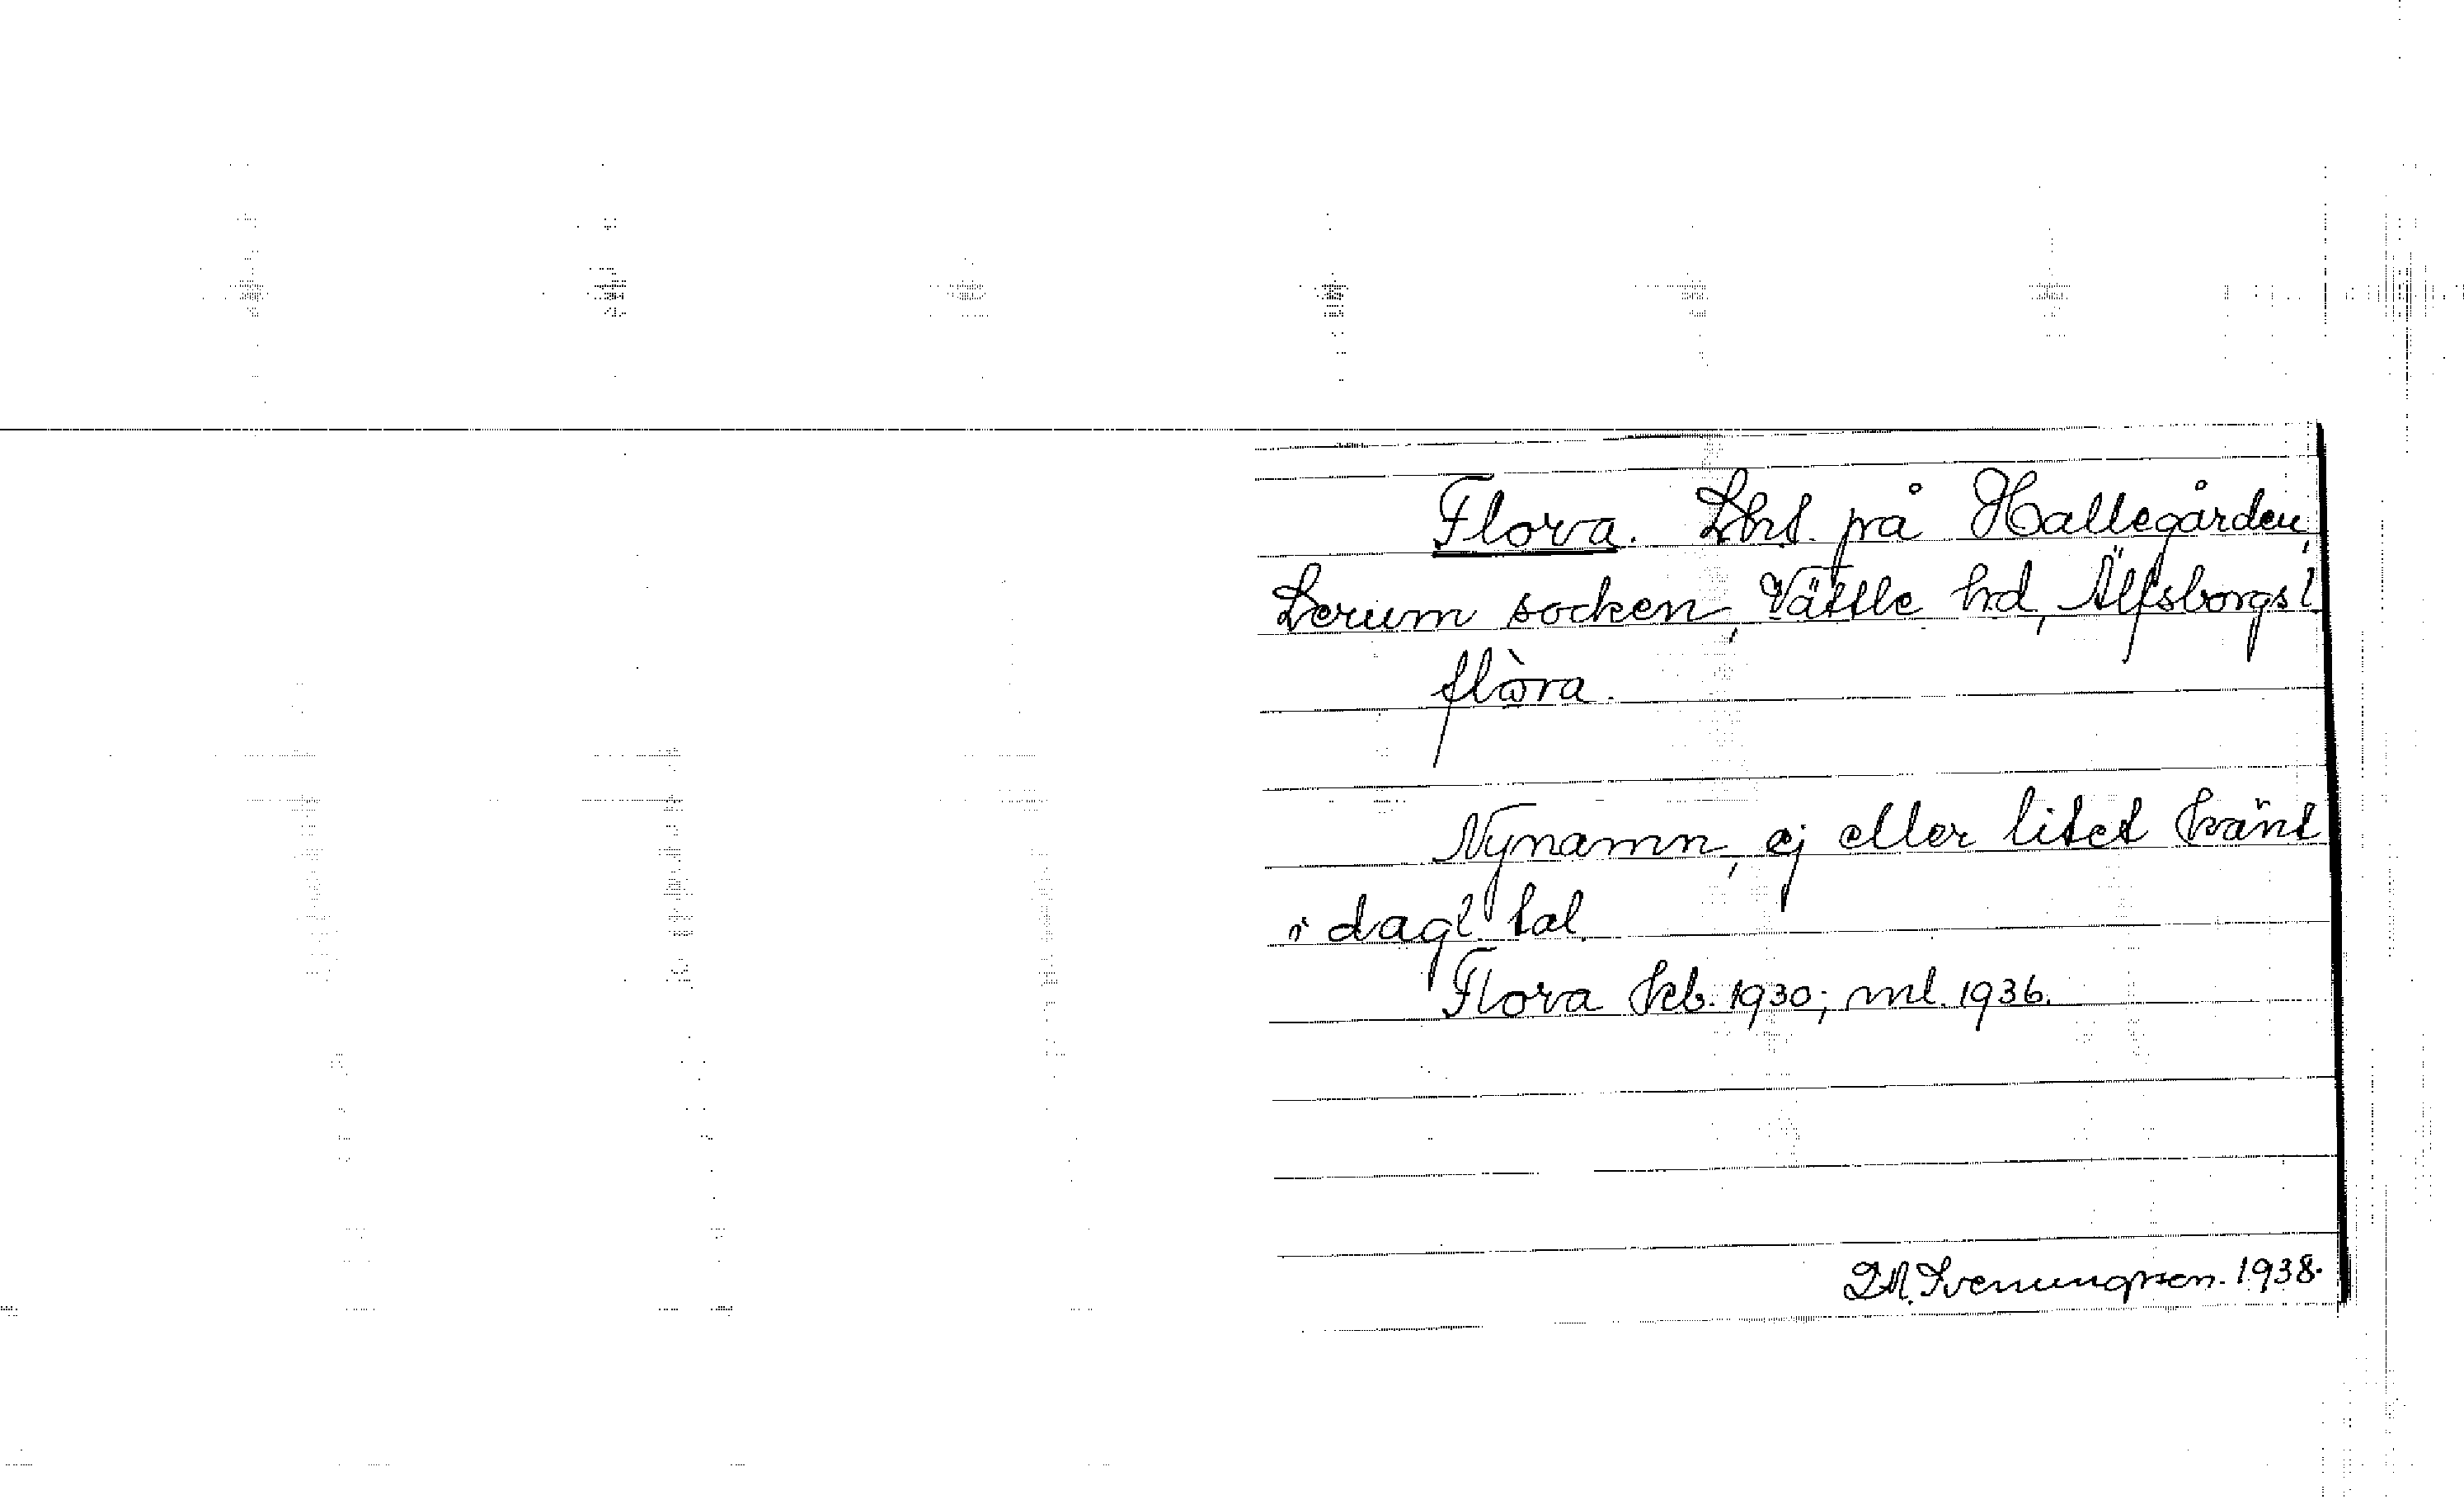 Flora. Lht. på Hallegården,
Lerum socken, Vättle hd, Älfsborgs l.
flòra.
Nynamn, ej eller litet känt
i dagl. tal.
Flora kb. 1930; ml. 1936.
Svenungsson. 1938.